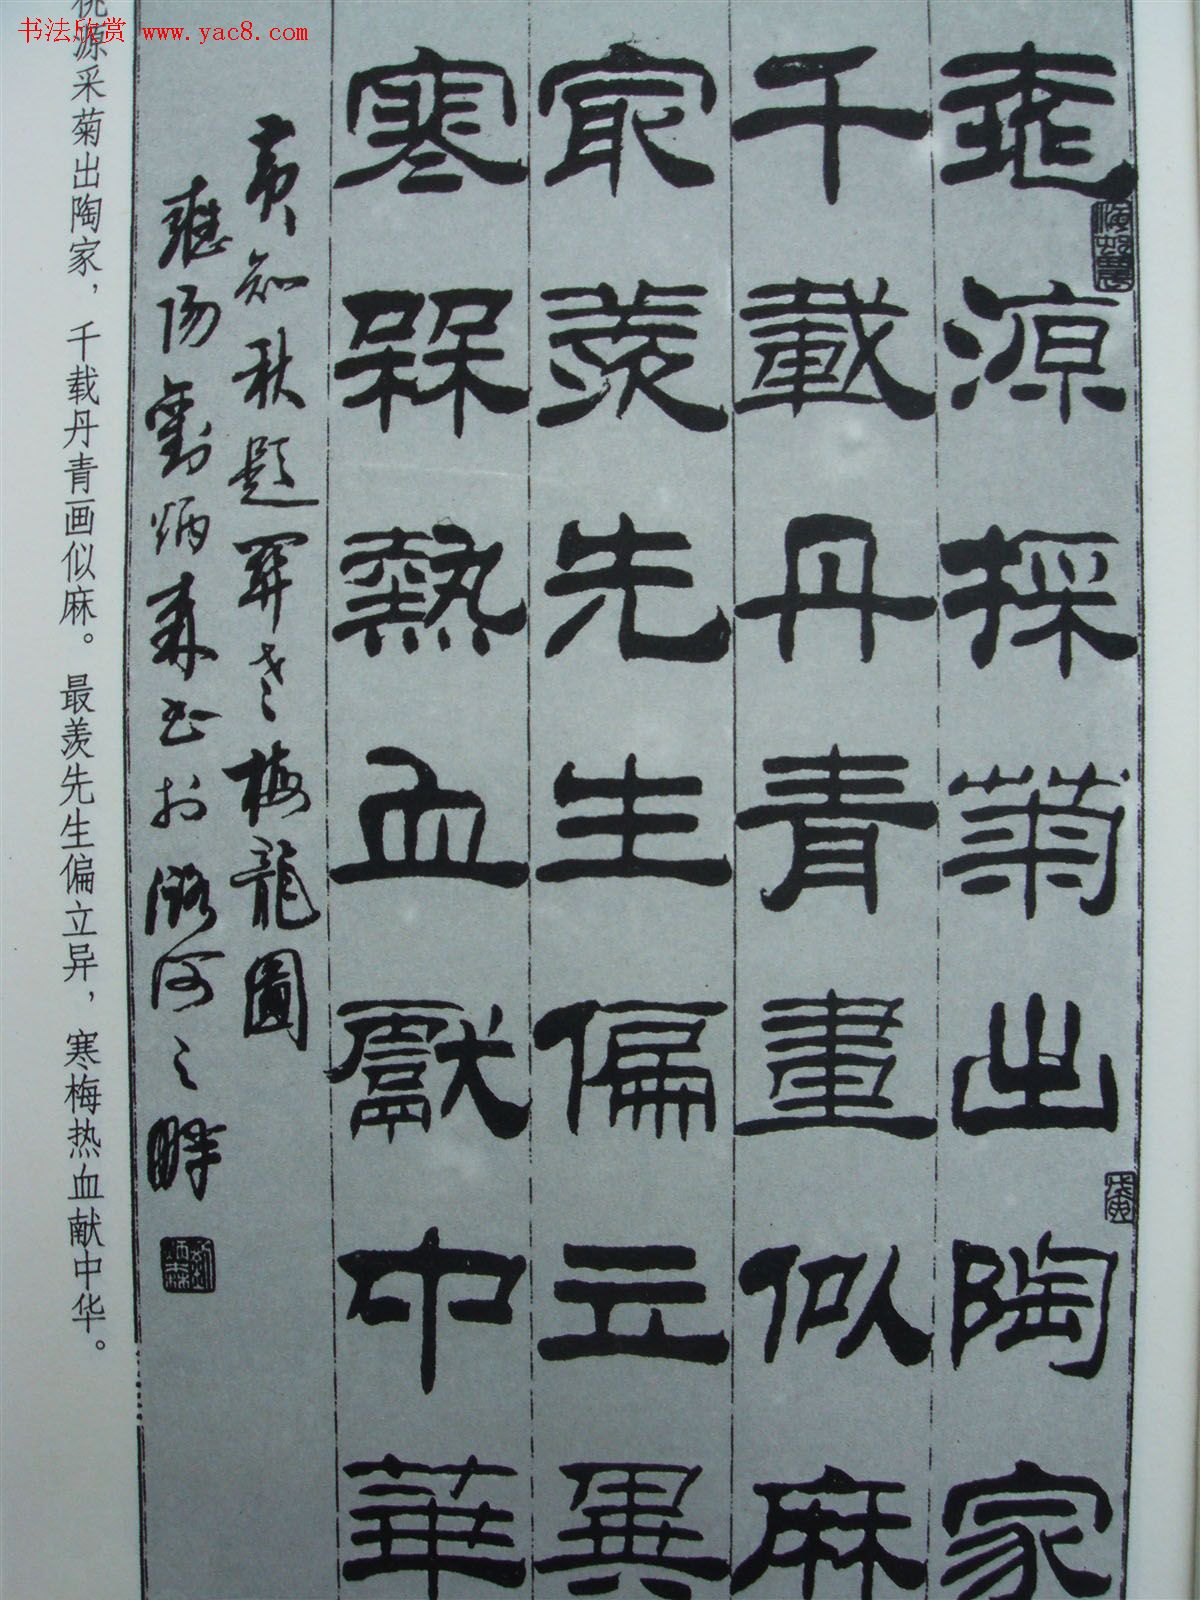 书法欣赏 www.yac8.com
桃源採菊出陶家
千載丹青畫似麻
冣羨先生偏立異
寒槑熱血獻中華
黄知秋題關老梅龍圖
應陽劉炳森書於潞河之畔
戊寅
劉炳森
桃源采菊出陶家，千载丹青画似麻。最羡先生偏立异，寒梅热血献中华。